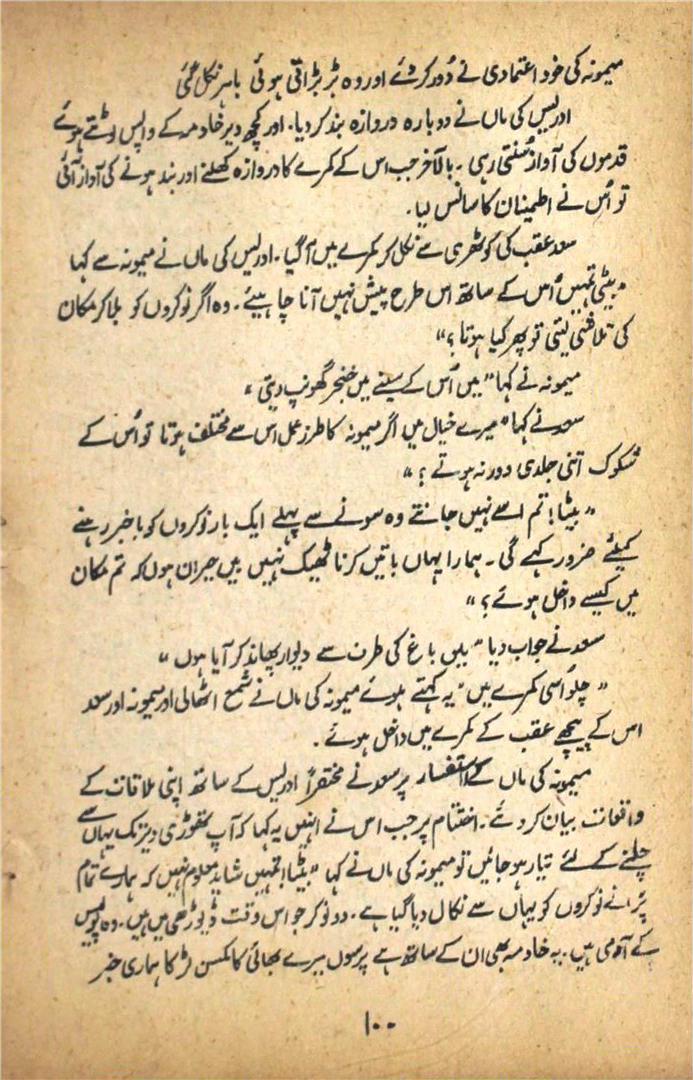 میمونہ کی خود اعتمادی نے دُور کر دئے اور وہ بڑبڑاتی ہوئی باہر نکل گئی
ادریس کی ماں نے دوبارہ دروازہ بند کر دیا۔ اور کچھ دیر خادمہ کے واپس لوٹتے ہوئے
قدموں کی آواز سُنتی رہی۔ بالآخر جب اس کے کمرے کا دروازہ کھلنے اور بند ہونے کی آواز آئی
تو اُس نے اطمینان کا سانس لیا۔
سعد عقب کی کوٹھری سے نکل کر کمرے میں آ گیا۔ ادریس کی ماں نے میمونہ سے کہا
"بیٹی تمہیں اُس کے ساتھ اس طرح پیش نہیں آنا چاہیئے۔ وہ اگر نوکروں کو بلا کر مکان
کی تلاشی لیتی تو پھر کیا ہوتا؟"
میمونہ نے کہا "میں اُس کے سینے میں خنجر گھونپ دیتی"
سعد نے کہا "میرے خیال میں اگر میمونہ کا طرز عمل اس سے مختلف ہوتا تو اُس کے
شکوک اتنی جلدی دور نہ ہوتے؟"
"بیٹا! تم اسے نہیں جانتے وہ سونے سے پہلے ایک بار نوکروں کو باخبر رہنے
کیلئے ضرور کہے گی۔ ہمارا یہاں باتیں کرنا ٹھیک نہیں میں حیران ہوں کہ تم مکان
میں کیسے داخل ہوئے؟"
سعد نے جواب دیا "میں باغ کی طرف سے دیوار پھاند کر آیا ہوں"
"چلو اُسی کمرے میں" یہ کہتے ہوئے میمونہ کی ماں نے شمع اٹھالی اور میمونہ اور سعد
اس کے پیچھے عقب کے کمرے میں داخل ہوئے۔
میمونہ کی ماں کے استفسار پر سعد نے مختصراً ادریس کے ساتھ اپنی ملاقات کے
واقعات بیان کر دئے۔ اختتام پر جب اس نے انہیں یہ کہا کہ آپ تھوڑی دیر تک یہاں سے
چلنے کے لئے تیار ہو جائیں تو میمونہ کی ماں نے کہا "بیٹا! تمہیں شاید معلوم نہیں کہ ہمارے تمام
پُرانے نوکروں کو یہاں سے نکال دیا گیا ہے۔ دو نوکر جو اس وقت ڈیوڑھی میں ہیں۔ وہ پولیس
کے آدمی ہیں۔ یہ خادمہ بھی ان کے ساتھ ہے پرسوں میرے بھائی کا کمسن لڑکا ہماری خبر
۱۰۰